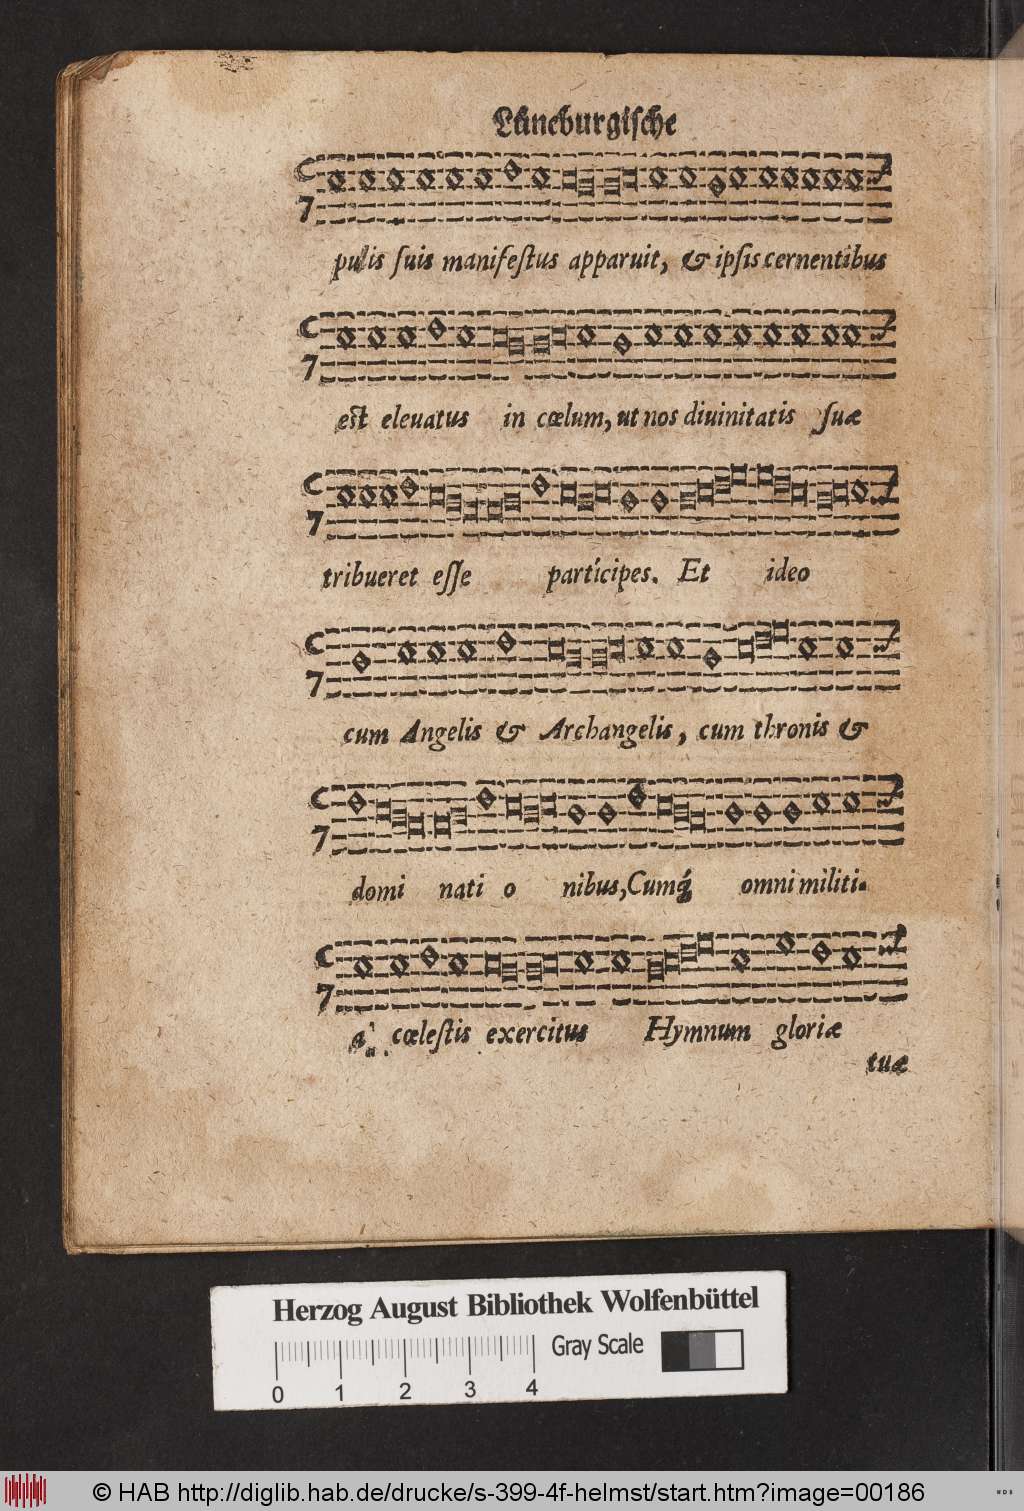 Lüneburgische
pulis ſuis manifeſtus apparuit, & ipſis cernentibus
eſt eleuatus in cœlum, ut nos diuinitatis ſuæ
tribueret eſſe partícipes. Et ideo
cum Angelis & Archangelis, cum thronis &
domi nati o nibus, Cumq́ omni militi-
a cœleſtis exercitus Hymnum gloriæ
tuæ
Herzog August Bibliothek Wolfenbüttel
Gray Scale
0 1 2 3 4
© HAB http://diglib.hab.de/drucke/s-399-4f-helmst/start.htm?image=00186